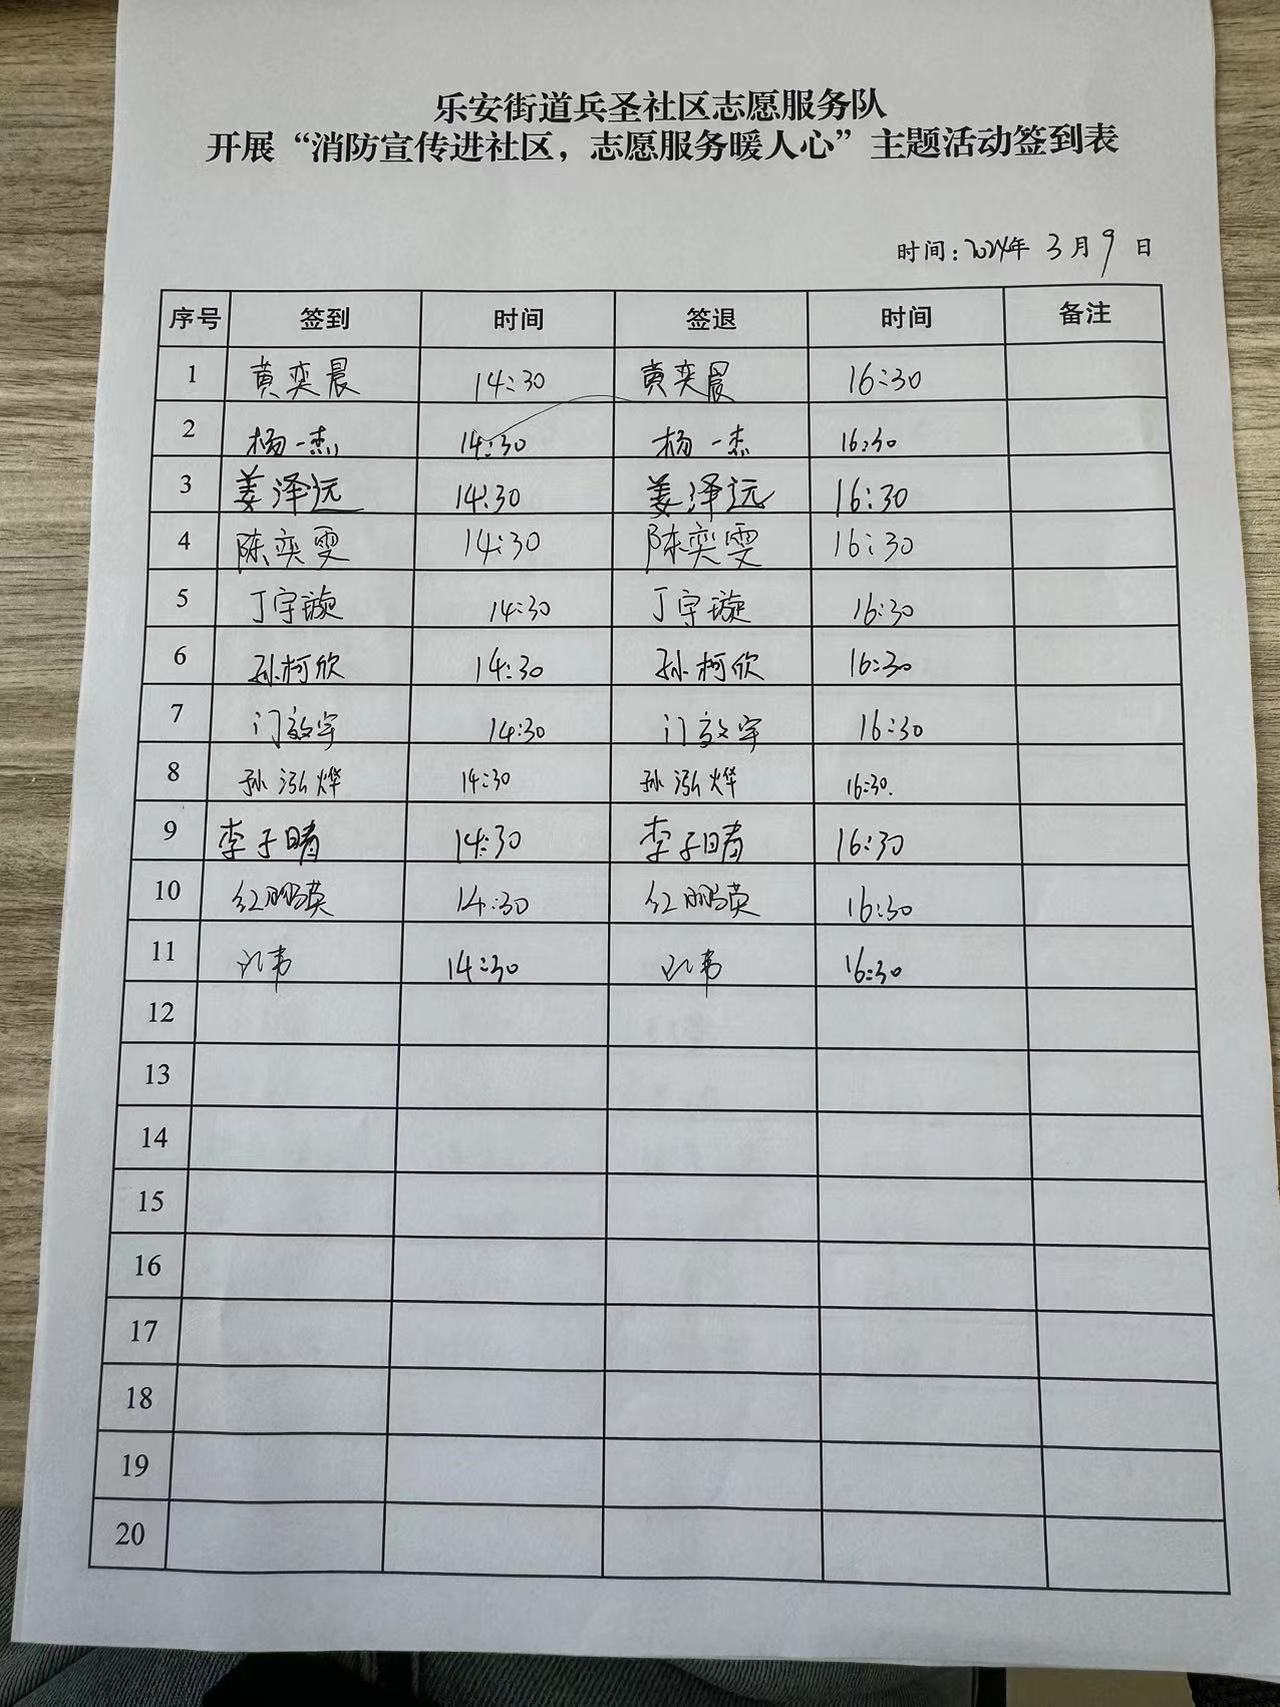 乐安街道兵圣社区志愿服务队
开展“消防宣传进社区，志愿服务暖人心”主题活动签到表
时间：2024年 3月 9日
序号 签到 时间 签退 时间 备注
1 黄奕晨 14:30 黄奕晨 16:30
2 杨一杰 14:30 杨一杰 16:30
3 姜泽远 14:30 姜泽远 16:30
4 陈奕雯 14:30 陈奕雯 16:30
5 丁宇璇 14:30 丁宇璇 16:30
6 孙柯欣 14:30 孙柯欣 16:30
7 14:30 16:30
8 孙泓烨 14:30 孙泓烨 16:30.
9 李子晴 14:30 李子晴 16:30
10 红鹏英 14:30 红鹏英 16:30
11 14:30 16:30
12
13
14
15
16
17
18
19
20